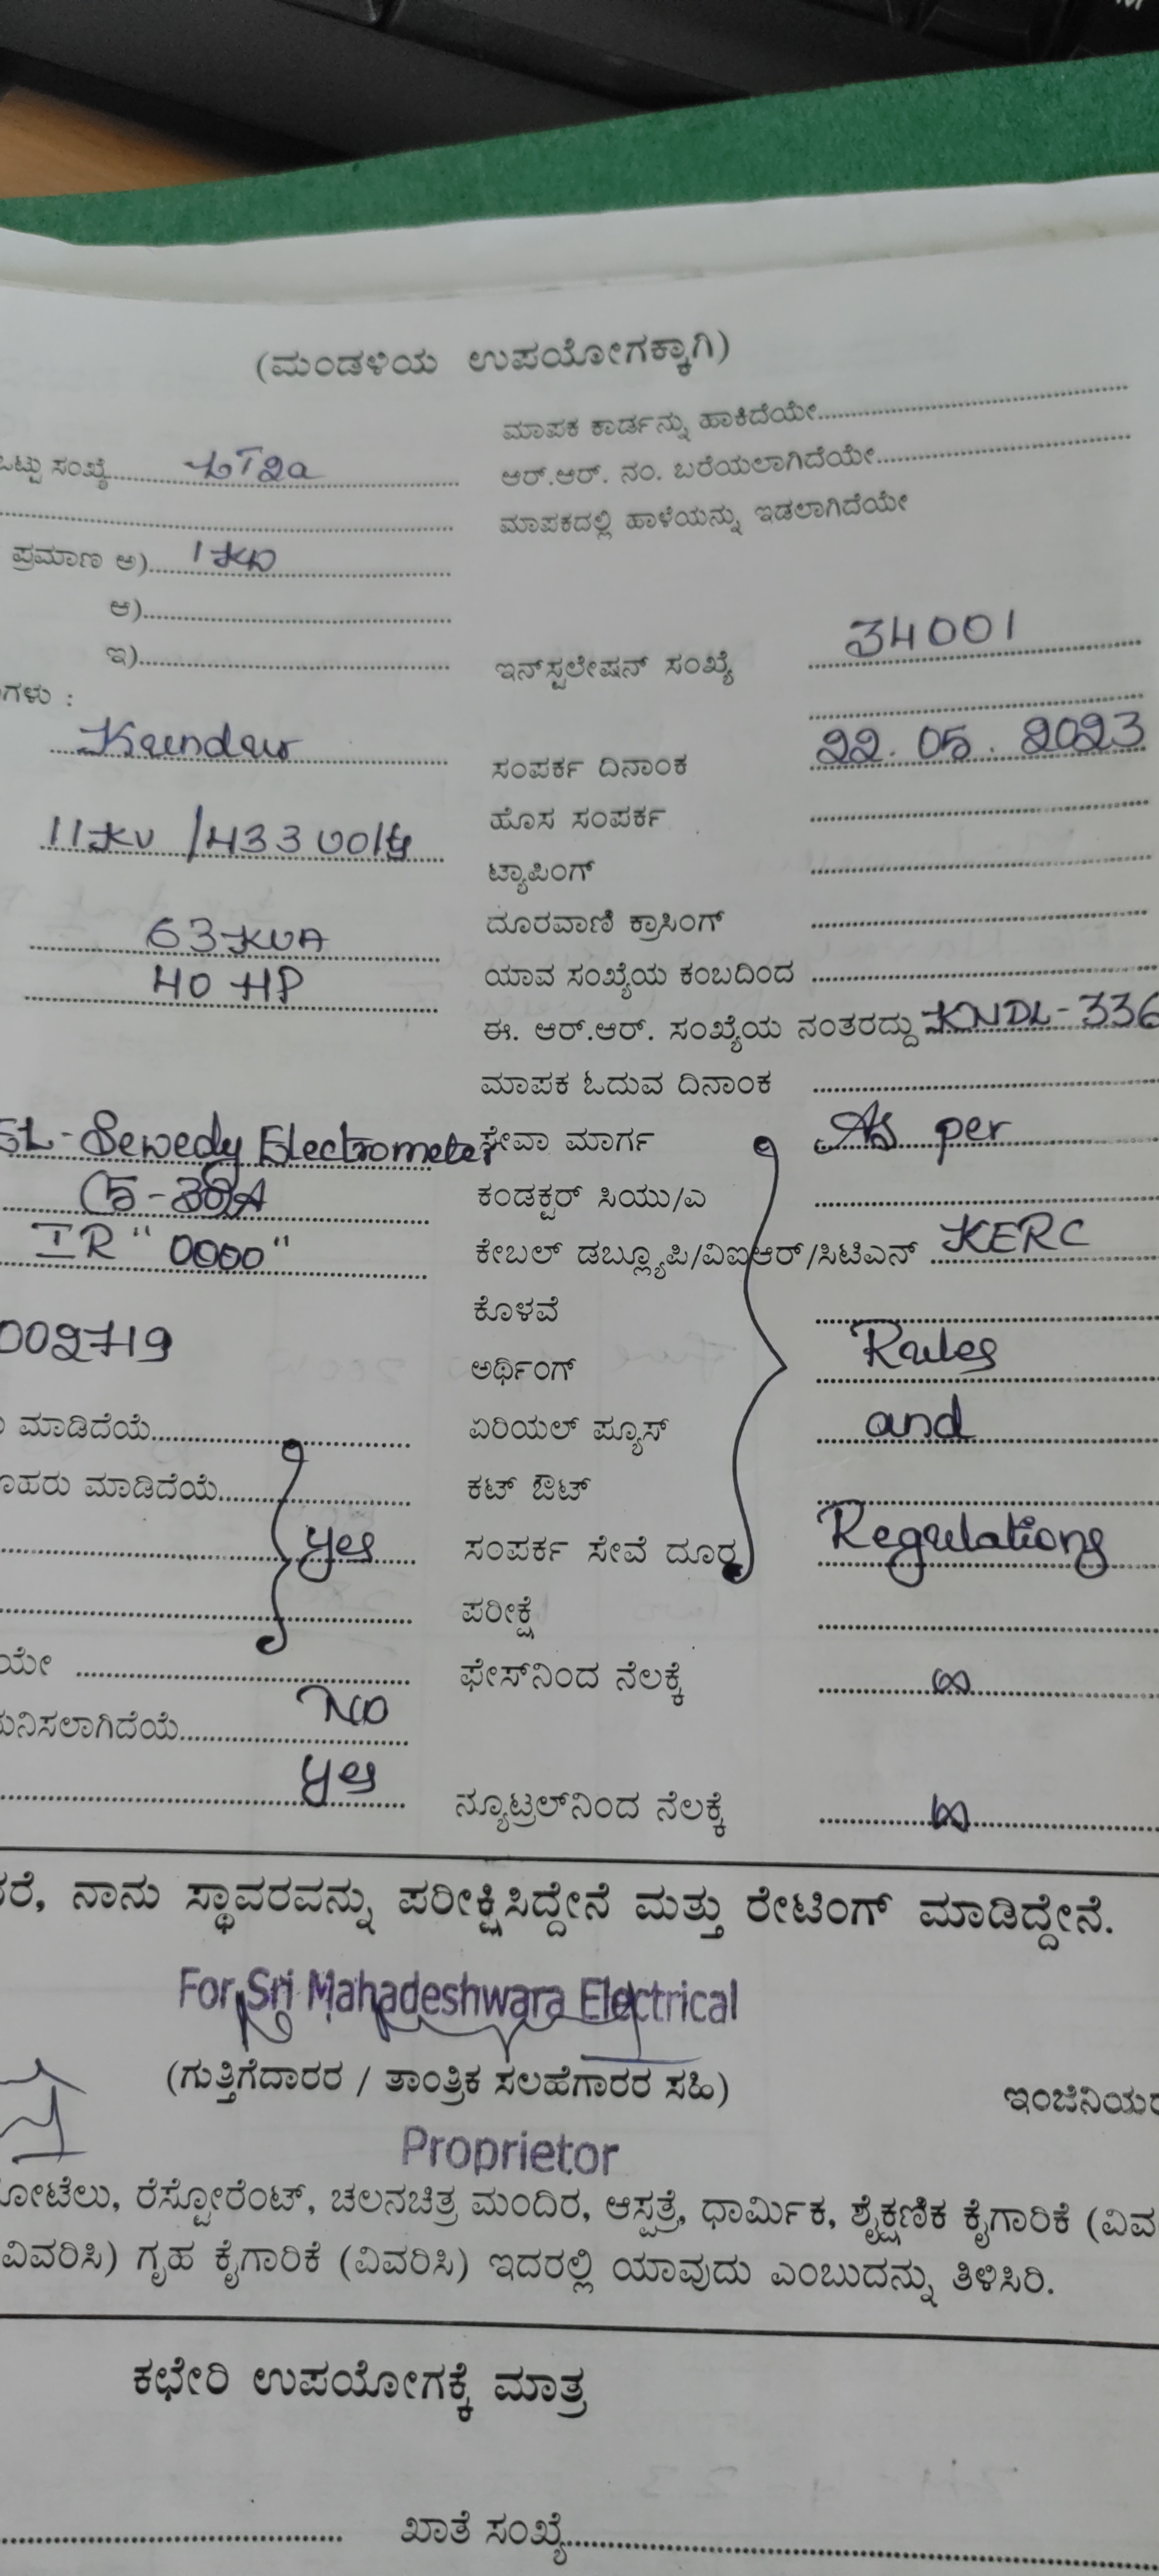 (ಮಂಡಳಿಯ ಉಪಯೋಗಕ್ಕಾಗಿ)
ಮಾಪಕ ಕಾರ್ಡನ್ನು ಹಾಕಿದೆಯೇ
ಒಟ್ಟು ಸಂಖ್ಯೆ LT2a ಆರ್.ಆರ್. ನಂ. ಬರೆಯಲಾಗಿದೆಯೇ
ಮಾಪಕದಲ್ಲಿ ಹಾಳೆಯನ್ನು ಇಡಲಾಗಿದೆಯೇ
ಪ್ರಮಾಣ ಅ)
ಆ)
ಇ) ಇನ್‌ಸ್ಟಲೇಷನ್ ಸಂಖ್ಯೆ 34001
ಗಳು :
ಸಂಪರ್ಕ ದಿನಾಂಕ 22.05.2023
ಹೊಸ ಸಂಪರ್ಕ
11KV /433 volts ಟ್ಯಾಪಿಂಗ್
63 KVA ದೂರವಾಣಿ ಕ್ರಾಸಿಂಗ್
40 HP ಯಾವ ಸಂಖ್ಯೆಯ ಕಂಬದಿಂದ
ಈ. ಆರ್.ಆರ್. ಸಂಖ್ಯೆಯ ನಂತರದ್ದು KNDL-336
ಮಾಪಕ ಓದುವ ದಿನಾಂಕ
SL-Sewedy Electrometer ಸೇವಾ ಮಾರ್ಗ As per
ಕಂಡಕ್ಟರ್ ಸಿಯು/ಎ
IR "0000" ಕೇಬಲ್ ಡಬ್ಲ್ಯೂಪಿ/ವಿಐಆರ್/ಸಿಟಿಎನ್ KERC
ಕೊಳವೆ
002719 ಅರ್ಥಿಂಗ್ Rules
ಮಾಡಿದೆಯೆ ಏರಿಯಲ್ ಪ್ಯೂಸ್ and
ಮೊಹರು ಮಾಡಿದೆಯೆ ಕಟ್ ಔಟ್
Yes ಸಂಪರ್ಕ ಸೇವೆ ದೂರ Regulations
ಪರೀಕ್ಷೆ
ಯೇ ಫೇಸ್‌ನಿಂದ ನೆಲಕ್ಕೆ ∞
ಮನಿಸಲಾಗಿದೆಯೆ No
Yes ನ್ಯೂಟ್ರಲ್‌ನಿಂದ ನೆಲಕ್ಕೆ ∞
ನಾನು ಸ್ಥಾವರವನ್ನು ಪರೀಕ್ಷಿಸಿದ್ದೇನೆ ಮತ್ತು ರೇಟಿಂಗ್ ಮಾಡಿದ್ದೇನೆ.
For Sri Mahadeshwara Electrical
(ಗುತ್ತಿಗೆದಾರರ / ತಾಂತ್ರಿಕ ಸಲಹೆಗಾರರ ಸಹಿ) ಇಂಜಿನಿಯರ
Proprietor
ಹೋಟೆಲು, ರೆಸ್ಟೋರೆಂಟ್, ಚಲನಚಿತ್ರ ಮಂದಿರ, ಆಸ್ಪತ್ರೆ, ಧಾರ್ಮಿಕ, ಶೈಕ್ಷಣಿಕ ಕೈಗಾರಿಕೆ (ವಿವ
ವಿವರಿಸಿ) ಗೃಹ ಕೈಗಾರಿಕೆ (ವಿವರಿಸಿ) ಇದರಲ್ಲಿ ಯಾವುದು ಎಂಬುದನ್ನು ತಿಳಿಸಿರಿ.
ಕಛೇರಿ ಉಪಯೋಗಕ್ಕೆ ಮಾತ್ರ
ಖಾತೆ ಸಂಖ್ಯೆ